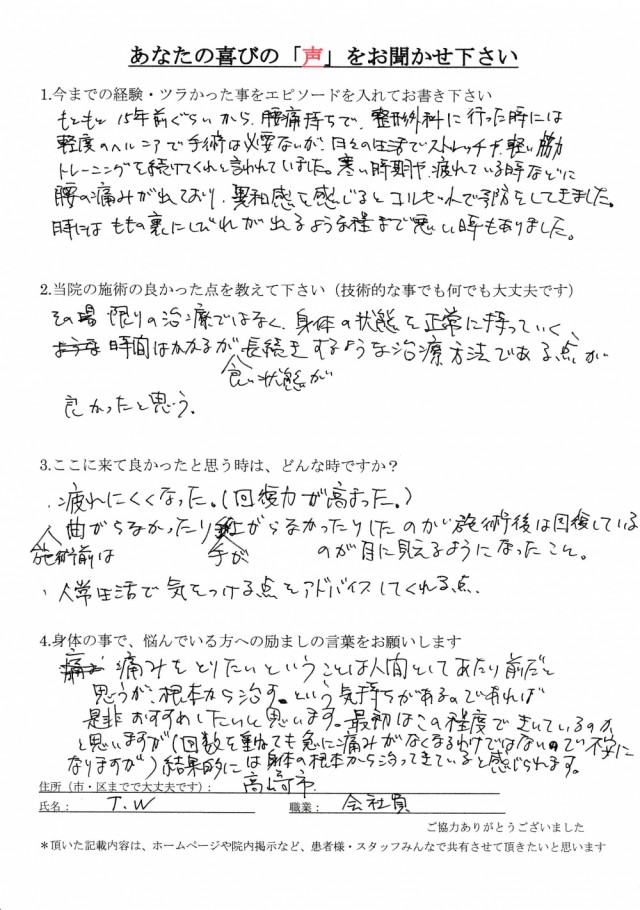 あなたの喜びの「声」をお聞かせ下さい
1.今までの経験・ツラかった事をエピソードを入れてお書き下さい
もともと15年前ぐらいから、腰痛持ちで、整形外科に行った時には
軽度のヘルニアで手術は必要ないが、日々の生活でストレッチや、軽い筋
トレーニングを続けてくれと言われていました。寒い時期や、疲れている時などに
腰の痛みが出ており、異和感を感じるとコルセットで予防をしてきました。
時にはももの裏にしびれが出るような程まで悪い時もありました。
2.当院の施術の良かった点を教えて下さい（技術的な事でも何でも大丈夫です）
その場限りの治療ではなく、身体の状態を正常に持っていく、
ような 時間はかかるが長続きするような治療方法である点が
良い状態が
良かったと思う．
3.ここに来て良かったと思う時は、どんな時ですか？
・疲れにくくなった。(回復力が高まった。)
・曲がらなかったり 上がらなかったりしたのが施術後は回復している
施術前は 手が のが目に見えるようになったこと。
・日常生活で気をつける点をアドバイスしてくれる点．
4.身体の事で、悩んでいる方への励ましの言葉をお願いします
痛みをとりたいということは人間としてあたり前だと
思うが、根本から治す。という気持ちがあるのであれば
是非おすすめしたいと思います。最初はこの程度できいているのか
と思いますが(回数を重ねても急に痛みがなくなるわけではないので不安に
なりますが)結果的には身体の根本から治ってきていると感じられます。
住所（市・区までで大丈夫です）： 高崎市
氏名： T.W 職業： 会社員
ご協力ありがとうございました
＊頂いた記載内容は、ホームページや院内掲示など、患者様・スタッフみんなで共有させて頂きたいと思います